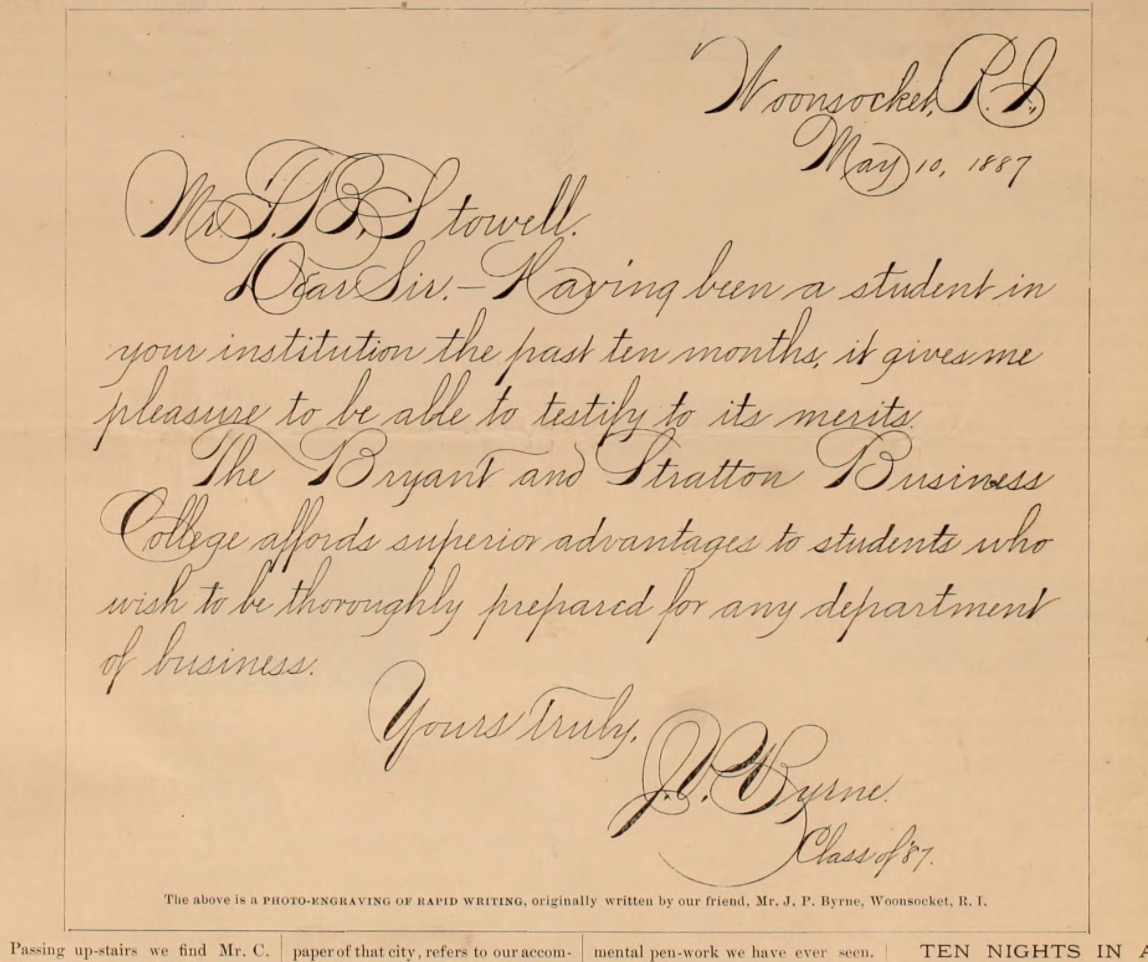 Woonsocket, R. I.,
May 10, 1887
Mr. T. B. Stowell.
Dear Sir.— Having been a student in
your institution the past ten months, it gives me
pleasure to be able to testify to its merits.
The Bryant and Stratton Business
College affords superior advantages to students who
wish to be thoroughly prepared for any department
of business.
Yours Truly,
J. P. Byrne.
Class of '87.
The above is a PHOTO-ENGRAVING OF RAPID WRITING, originally written by our friend, Mr. J. P. Byrne, Woonsocket, R. I.
Passing up-stairs we find Mr. C.
paper of that city, refers to our accom-
mental pen-work we have ever seen.
TEN NIGHTS IN A